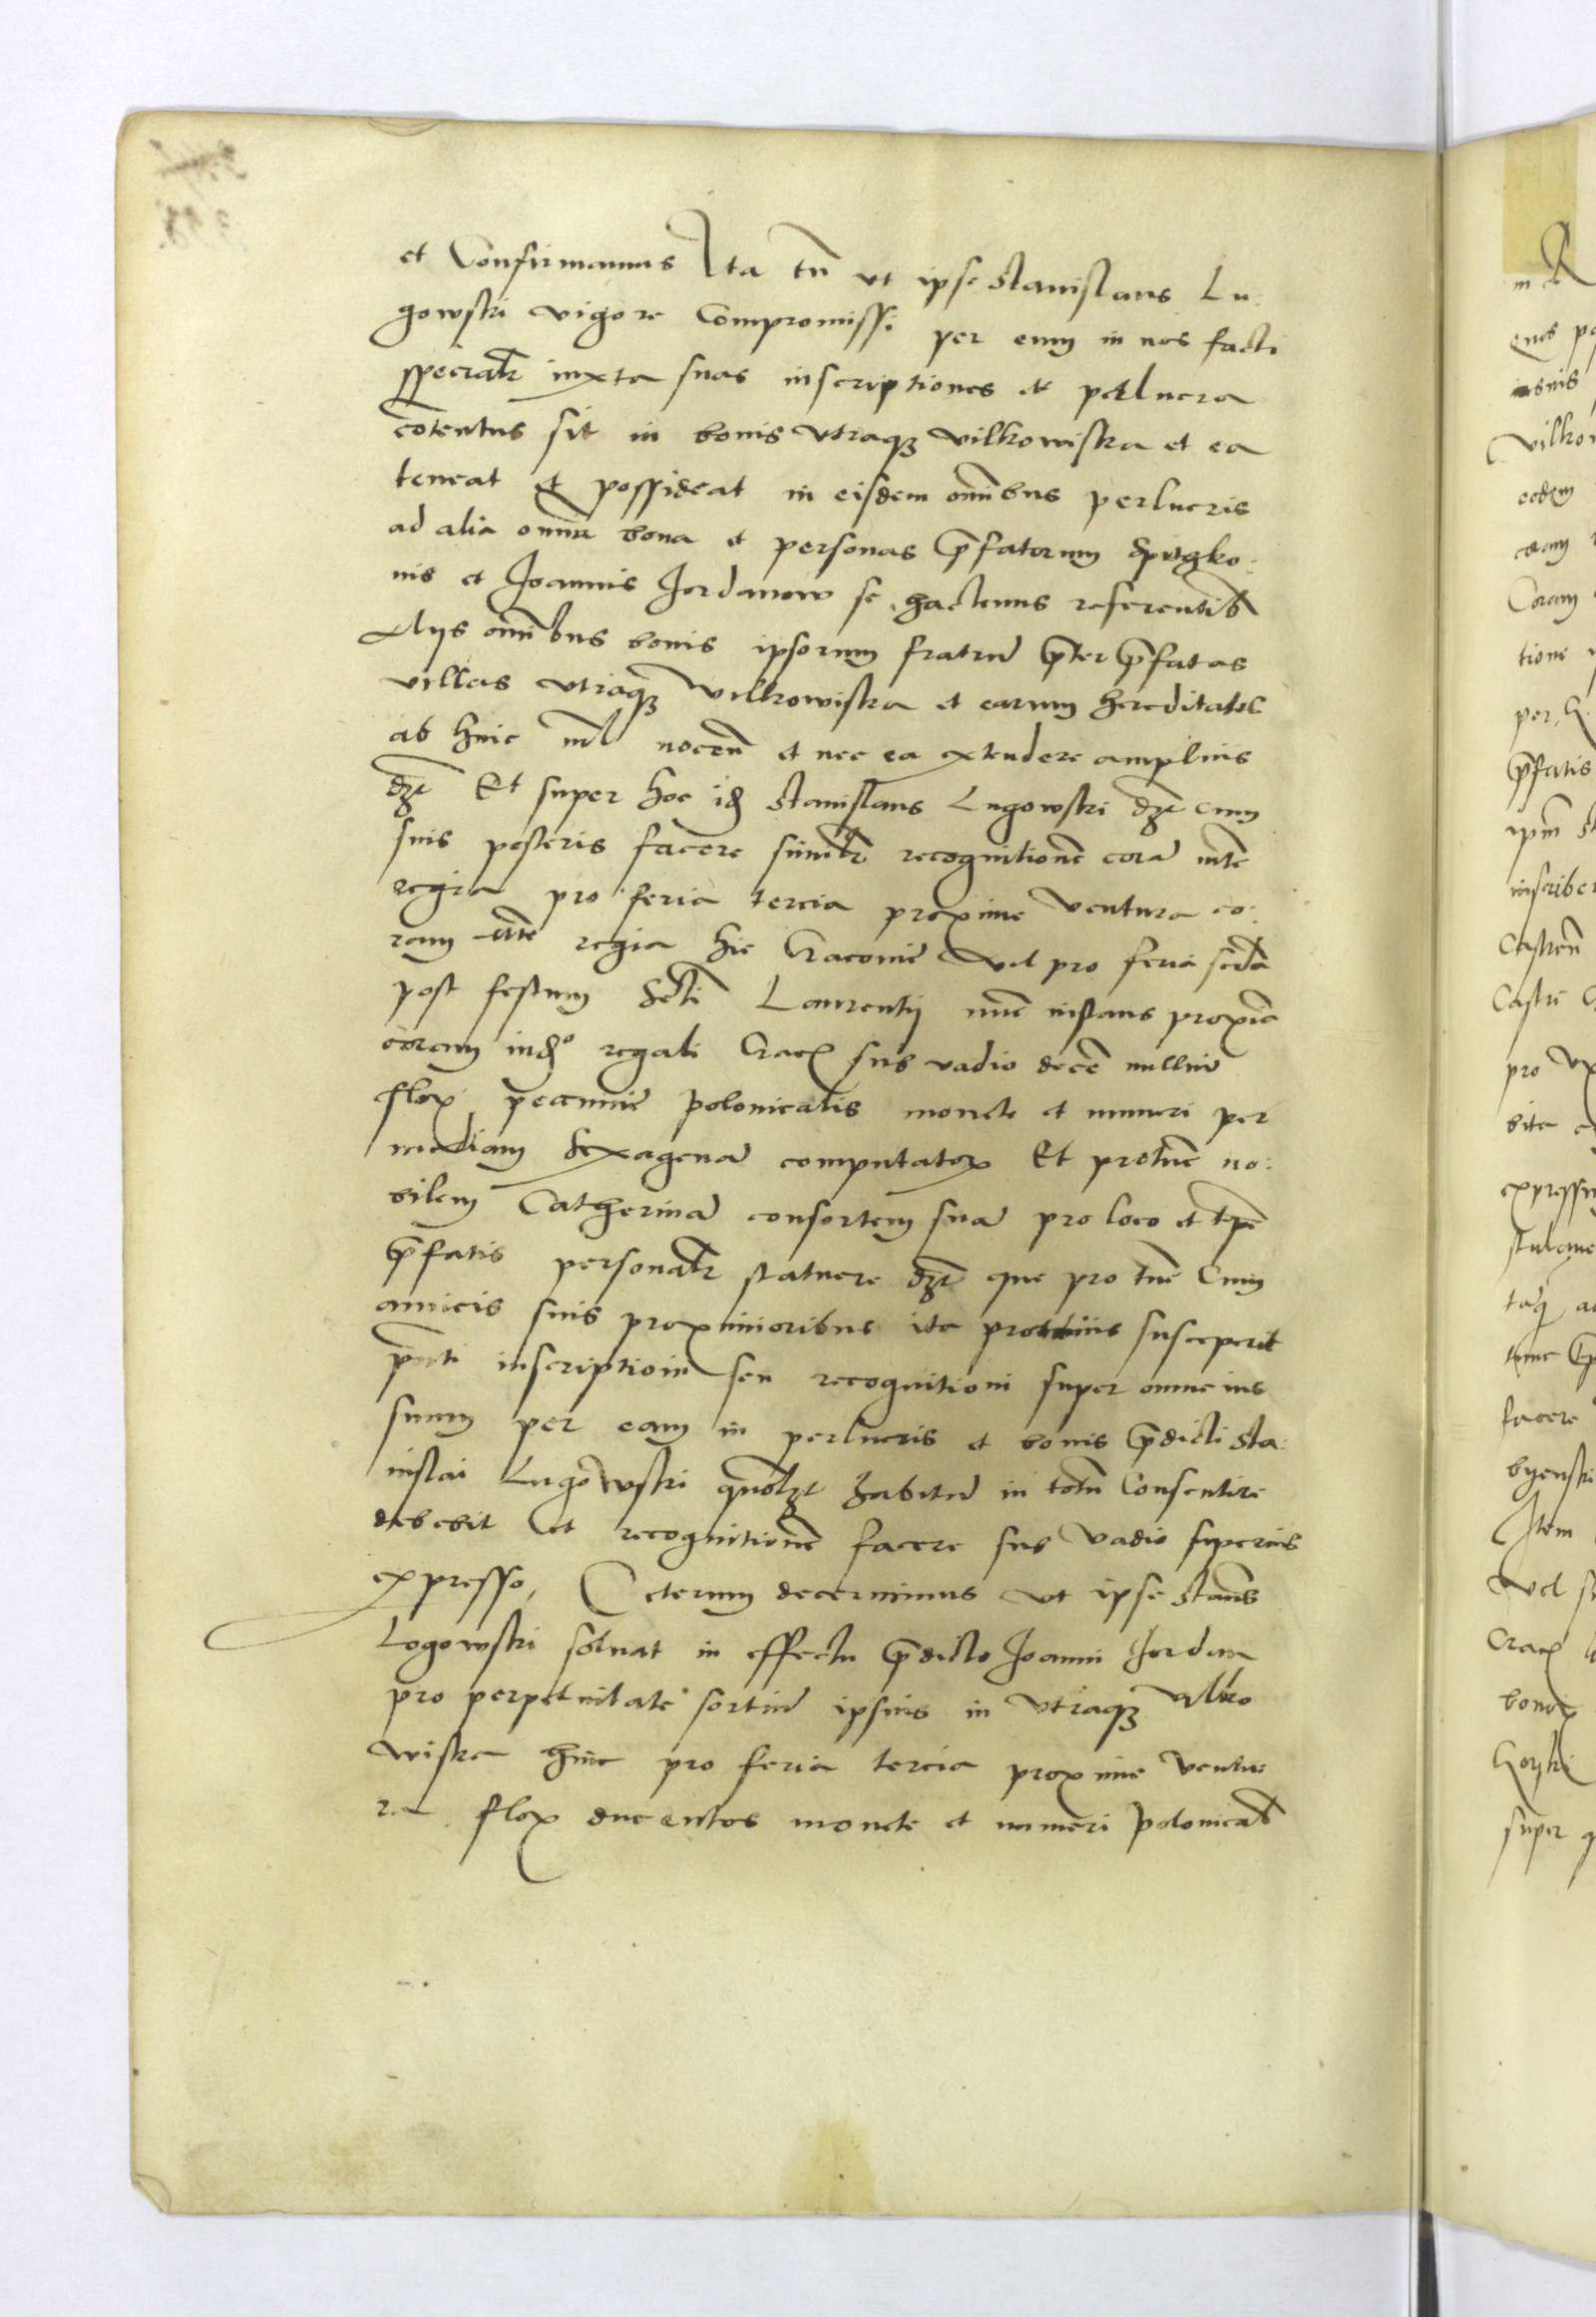 et Confirmamus Ita tn̄ vt ipse Stanislaus Lu:
gowski vigore Compromissi per eum in nos facti
specialr̄ iuxta suas inscriptiones et perlucra
cōtentus sit in bonis vtraqꝫ vilkowiska et ea
teneat et possideat in eisdem om̄ibus perlucris
ad alia omnia bona et personas p̄fatorum Spitgko:
nis et Joannis Jordanow se hactenus referentib
Alÿs om̄ibus bonis ipsorum fratrū p̄ter p̄fatas
villas vtraqꝫ Vilkowiska et earum hereditates
ab hinc nil nocen̄ et nec ea extendere amplius
dꝫt Et super hoc id Stanislaus Lugowski dꝫt cum
suis posteris facere similr̄ recognitionē corā mte
regia pro feria tercia proxime ventura co:
ram mte regia hic Cracouie Vel pro feria scd̄a
post festum Scti Laurentÿ nūc instans proxīe
coram iudo regali Cracꝫ sub vadio decē milliū
flox pecunie polonicalis monete et numeri per
mediam Sexagenā computatox Et protūc no:
bilem Catherinā consortem suā pro loco et tpe
p̄fatis personalr̄ statuere dꝫt que pro tūc Cum
amicis suis proximioribus ita susceperit
p̄nti inscriptioni seu recognitioni super omne ius
suum per eam in perlucris et bonis p̄dicti Sta:
nislai Lugowski quolꝫt habitū in totū Consentire
debebit et recognitionē facere sub Vadio superius
expresso, Ceterum decernimus vt ipse Stanis
Logowski soluat in effectu p̄dicto Joanni Jordan
pro perpetuitate sortiū ipsius in vtraqꝫ vilko
wiska hinc pro feria tercia proxime ventu
ra flox ducentos monete et numeri polonical